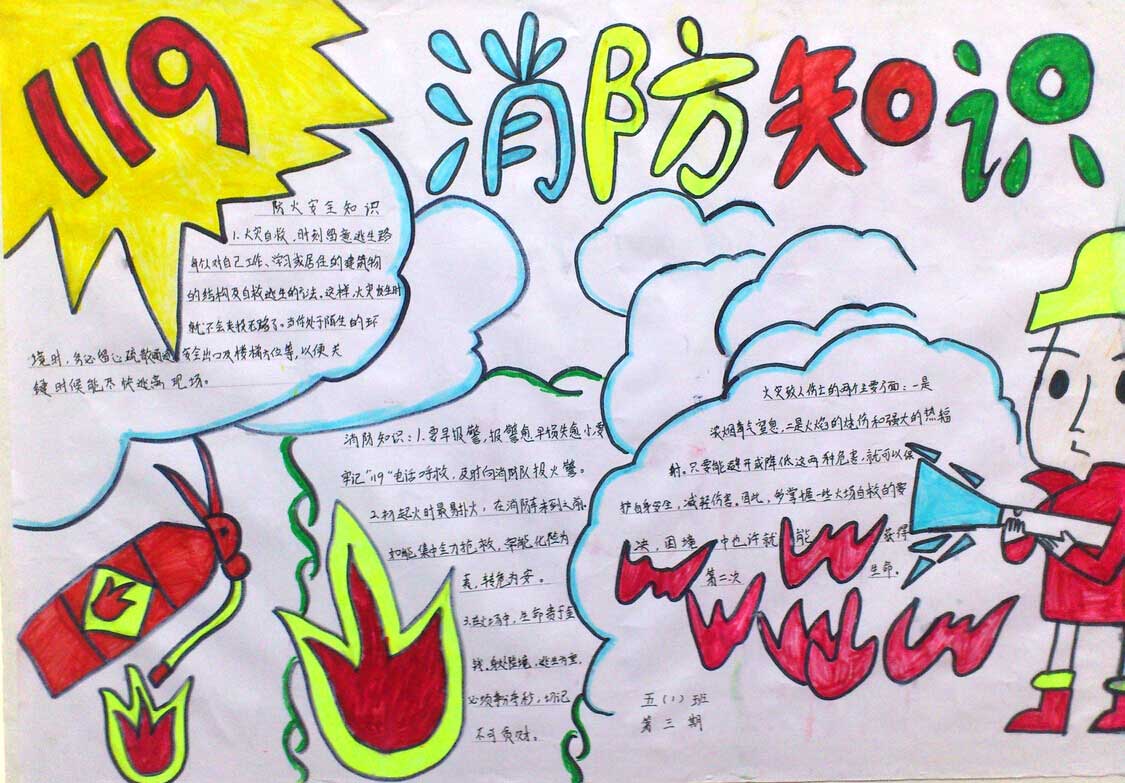 119
消防知识
防火安全知识
1.火灾自救,时刻留意逃生路
每个人对自己工作、学习或居住的建筑物
的结构及自救逃生的方法,这样,火灾发生时
就不会走投无路了。当你处于陌生的环
境时,务必留心疏散通道、安全出口及楼梯方位等,以便关
键时候能尽快逃离现场。
消防知识:1.要早报警,报警愈早损失愈小,要
牢记"119"电话呼救,及时向消防队报火警。
2.初起火时最易扑火,在消防车未到之前,
如能集中全力抢救,常能化险为
夷,转危为安。
3.在火场中,生命贵于金
钱,身处险境,逃生为重,
必须争分夺秒,切记
不可贪财。
火灾致人伤亡的两个主要方面:一是
浓烟毒气窒息,二是火焰的烧伤和强大的热辐
射。只要能避开或降低这两种危害,就可以保
护自身安全,减轻伤害。因此,多掌握一些火场自救的要
决,困境中也许就能获得
第二次生命。
五(1)班
第三期